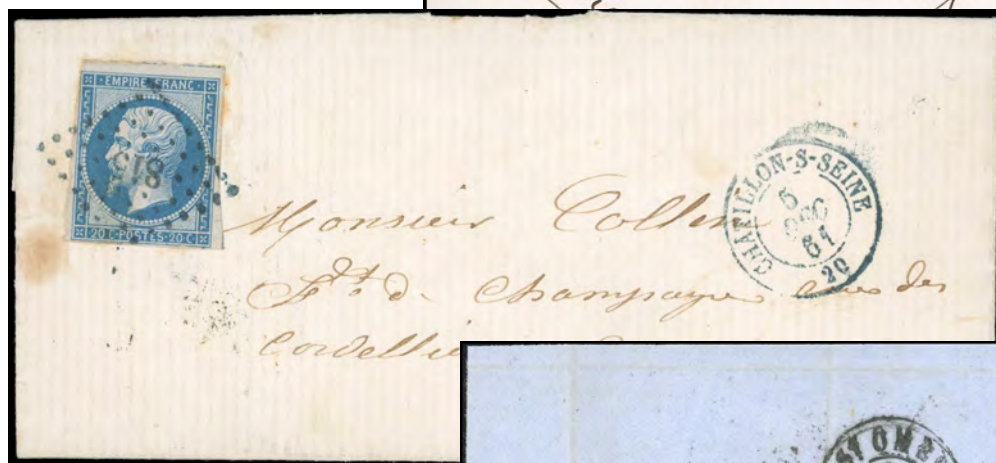 EMPIRE FRANC
813
20 C · POSTES · 20 C
CHATILLON-S-SEINE
5
DEC
61
20
Monsieur Collin
Champagne rue des
ST OMER